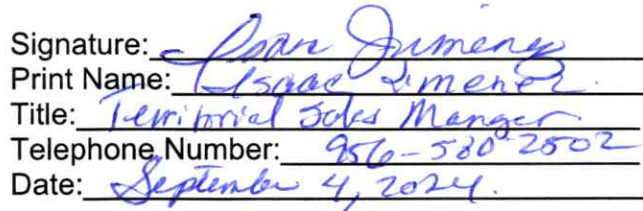 Signature: Isaac Jimenez
Print Name: Isaac Jimenez.
Title: Territorial Sales Manger
Telephone Number: 956-580-2502
Date: September 4, 2024.